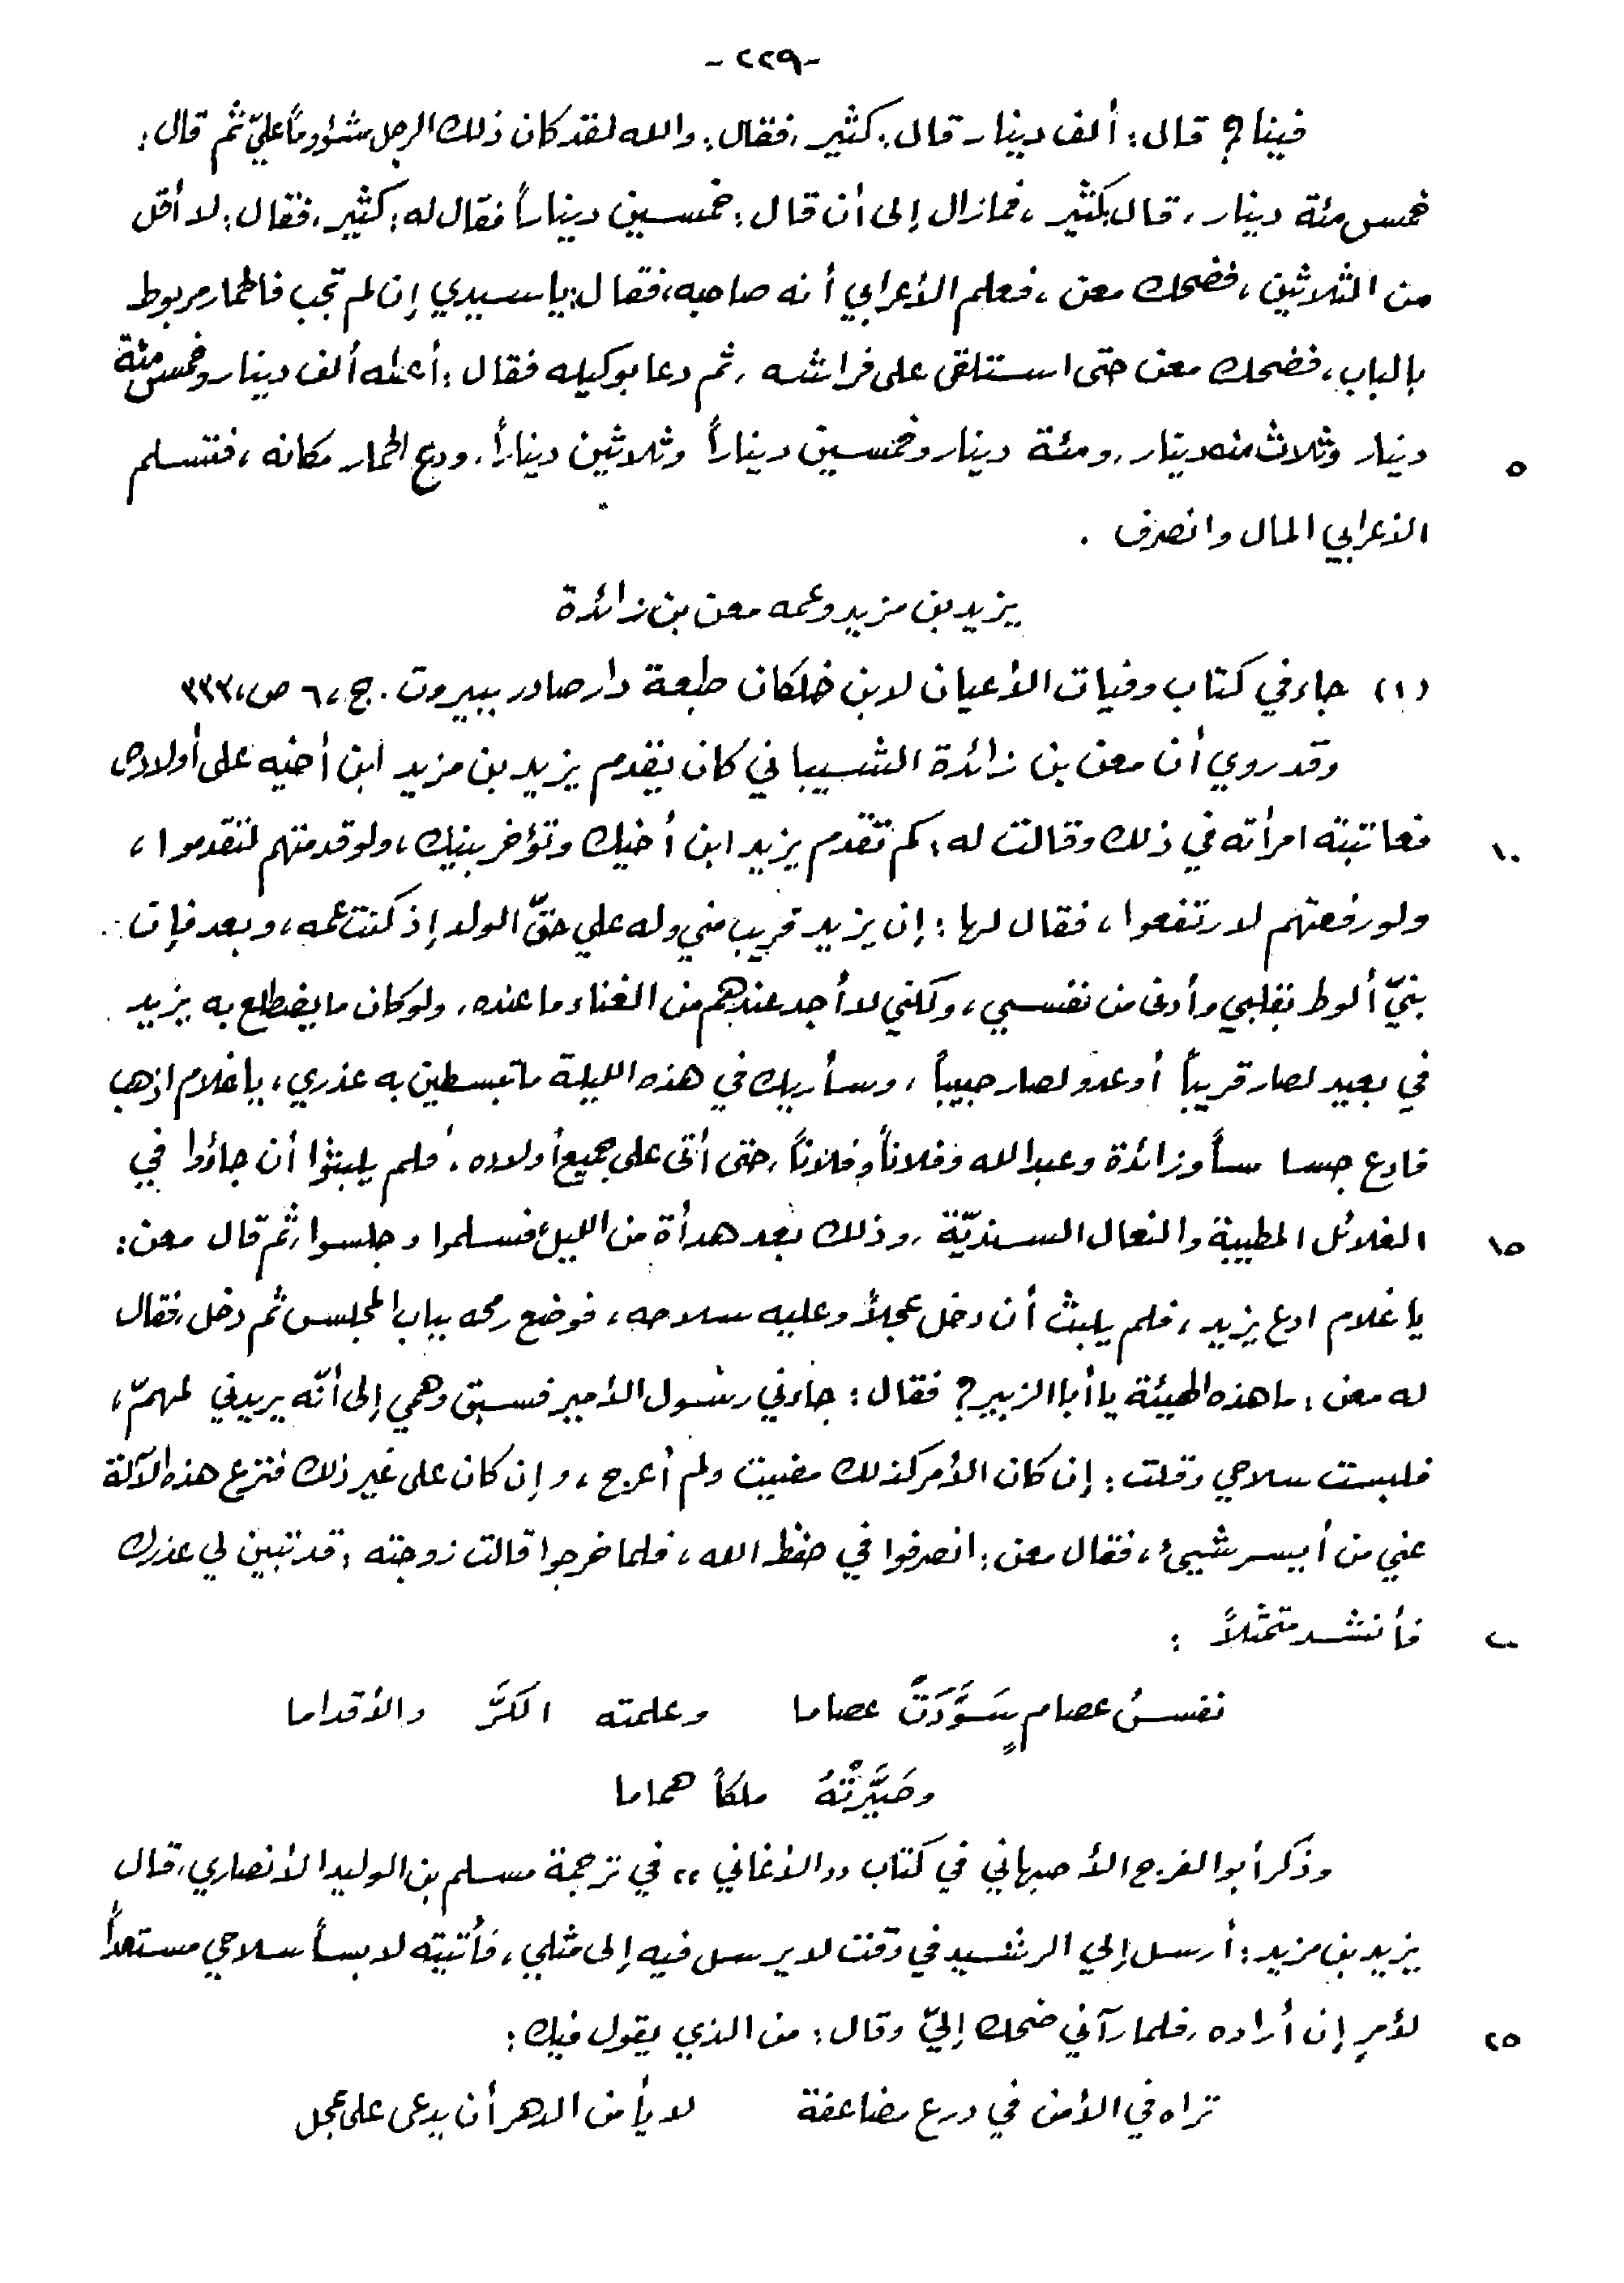 -٢٢٩-
فينا؟ قال: ألف دينار قال: كثير، فقال: والله لقد كان ذلك الرجل مشؤوماً عليّ ثم قال:
خمس مئة دينار، قال كثير، فمازال إلى أن قال: خمسين ديناراً فقال له: كثير، فقال: لا أقل
من الثلاثين، فضحك معن، فعلم الأعرابي أنه صاحبه، فقال: ياسيدي إن لم تجب فالحمار مربوط
بالباب، فضحك معن حتى استلقى على فراشه، ثم دعا بوكيله فقال: أعطه ألف دينار وخمس مئة
دينار وثلاث مئه دينار، ومئة دينار وخمسين ديناراً وثلاثين ديناراً، ودع الحمار مكانه، فتسلم
٥
الأعرابي المال وانصرف .
يزيد بن مزيد وعمه معن بن زائدة
(١) جاء في كتاب وفيات الأعيان لابن خلكان طبعة دار صادر ببيروت. ج، ٦ ص، ٣٣٣
وقد روي أن معن بن زائدة الشيباني كان يقدم يزيد بن مزيد ابن أخيه على أولاده
فعاتبته امرأته في ذلك وقالت له: كم تقدم يزيد ابن أخيك وتؤخر بنيك، ولو قدمتهم لتقدموا،
١٠
ولو رفعتهم لارتفعوا، فقال لها: إن يزيد قريب مني وله علي حقّ الولد إذ كنت عمه، وبعد فإن
بنيّ ألوط بقلبي وأدنى من نفسي، ولكني لا أجد عندهم من الغناء ما عنده، ولو كان ما يضطلع به يزيد
في بعيد لصار قريباً أو عدو لصار حبيباً، وسأريك في هذه الليلة ما تبسطين به عذري، ياغلام اذهب
فادع جسا ساً وزائدة وعبد الله وفلاناً وفلاناً، حتى أتى على جميع أولاده، فلم يلبثوا أن جاؤوا في
الغلائل المطيبة والنعال السنديّة، وذلك بعد هدأة من الليل فسلموا وجلسوا، ثم قال معن:
١٥
يا غلام ادع يزيد، فلم يلبث أن دخل عجلاً وعليه سلاحه، فوضع رمحه بباب المجلس ثم دخل، فقال
له معن: ما هذه الهيئة يا أبا الزبير؟ فقال: جاءني رسول الأمير فسبق وهمي إلى أنّه يريدني لمهمّ،
فلبست سلاحي وقلت: إن كان الأمر كذلك مضيت ولم أعرج، وإن كان على غير ذلك فنزع هذه الآلة
عني من أيسر شيئ، فقال معن: انصرفوا في حفظ الله، فلما خرجوا قالت زوجته: قد تبين لي عذرك
فأنشد متمثلاً :
٢٠
نفسُ عصامٍ سَوَّدَتْ عصاما وعلمته الكَرَّ والأقداما
وصَيَّرتْهُ ملكاً هماما
وذكر أبو الفرج الأصبهاني في كتاب «الأغاني» في ترجمة مسلم بن الوليد الأنصاري، قال
يزيد بن مزيد: أرسل إلي الرشيد في وقت لا يرسل فيه إلى مثلي، فأتيته لابساً سلاحي مستعداً
لأمرٍ إن أراده، فلما رآني ضحك إليّ وقال: من الذي يقول فيك:
٢٥
تراه في الأمن في درع مضاعفة لا يأمن الدهر أن يدعى على عجل